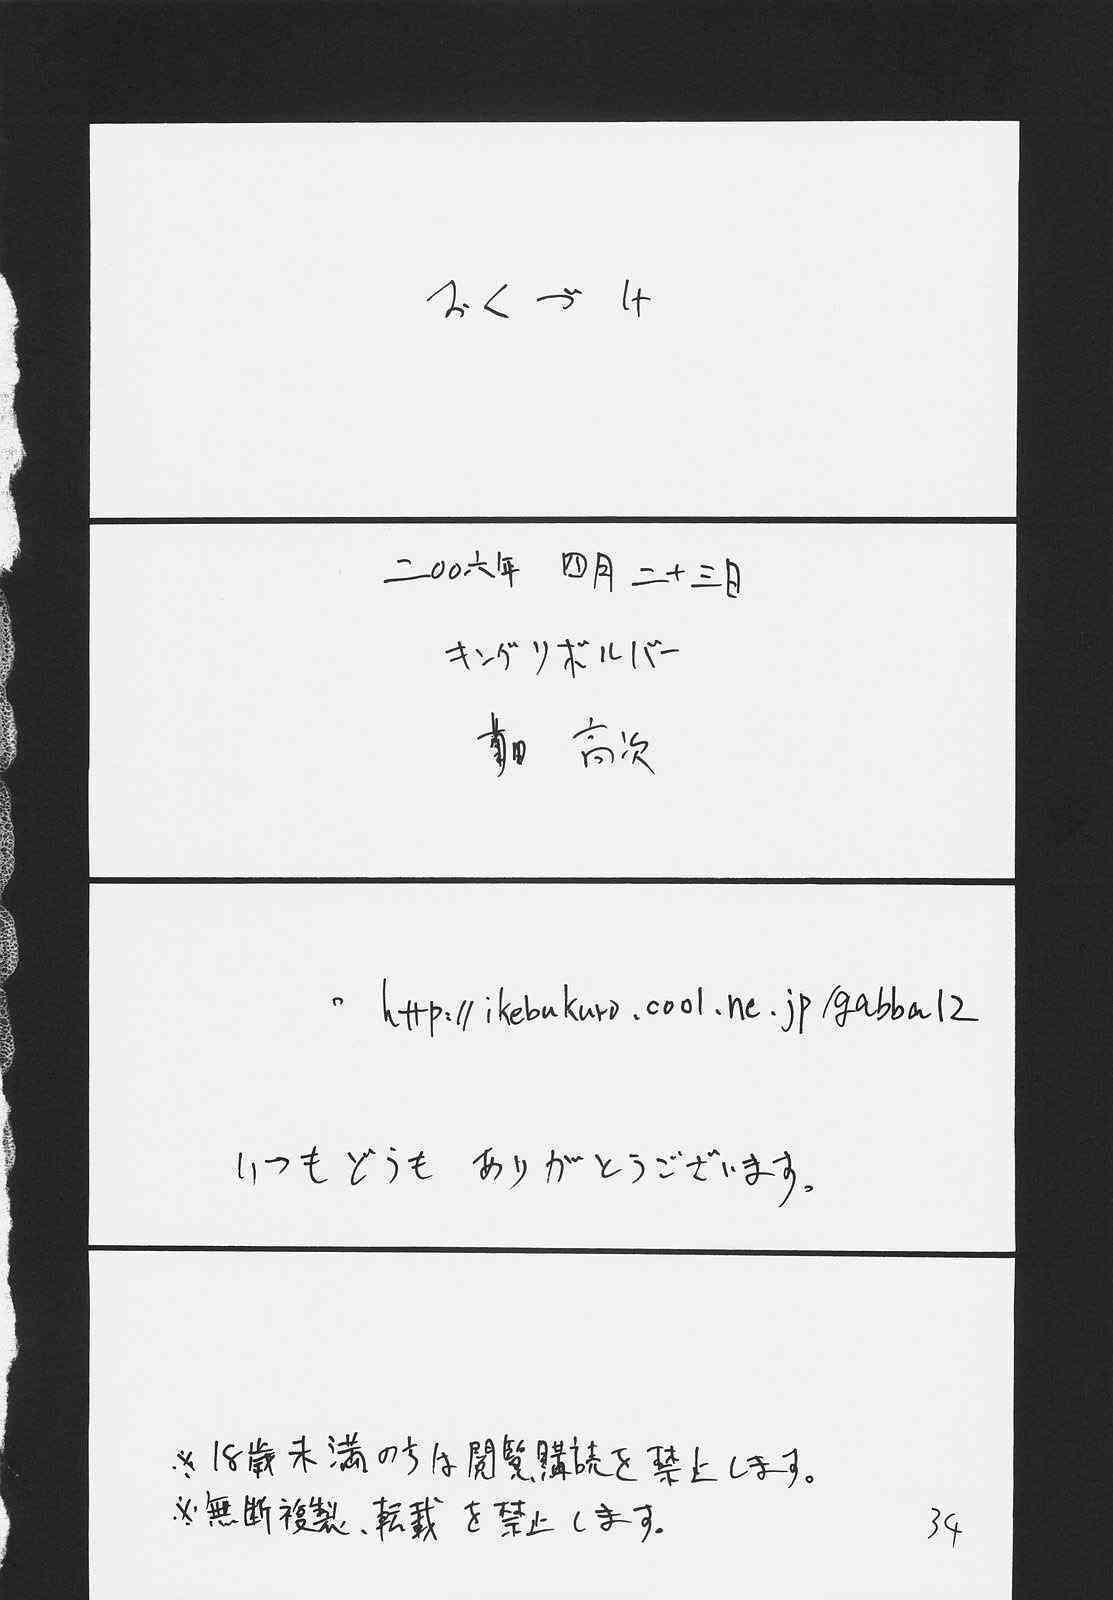 おくづけ
二00六年 四月二十三日
キングリボルバー
高次
http://ikebukuro.cool.ne.jp/gabba12
いつもどうも ありがとうございます。
※18歳未満のちは閲覧購読を禁止します。
※無断複製、転載を禁止します。
34